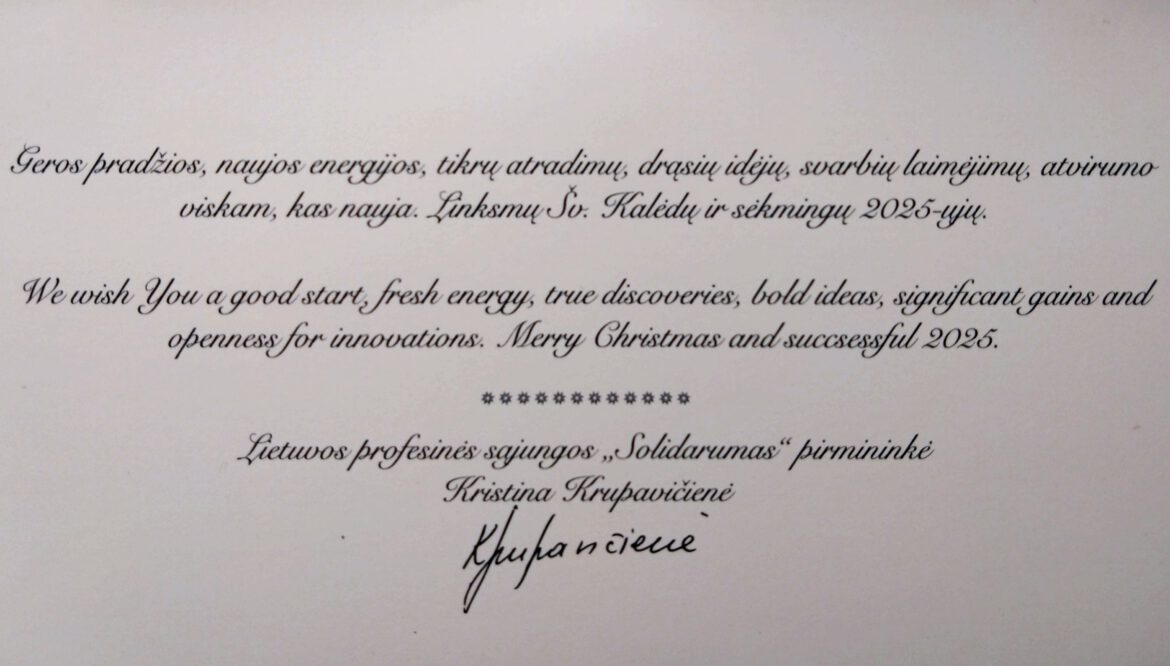 Geros pradžios, naujos energijos, tikrų atradimų, drąsių idėjų, svarbių laimėjimų, atvirumo
viskam, kas nauja. Linksmų Šv. Kalėdų ir sėkmingų 2025-ųjų.
We wish You a good start, fresh energy, true discoveries, bold ideas, significant gains and
openness for innovations. Merry Christmas and succsessful 2025.
Lietuvos profesinės sąjungos „Solidarumas“ pirmininkė
Kristina Krupavičienė
Krupavičienė